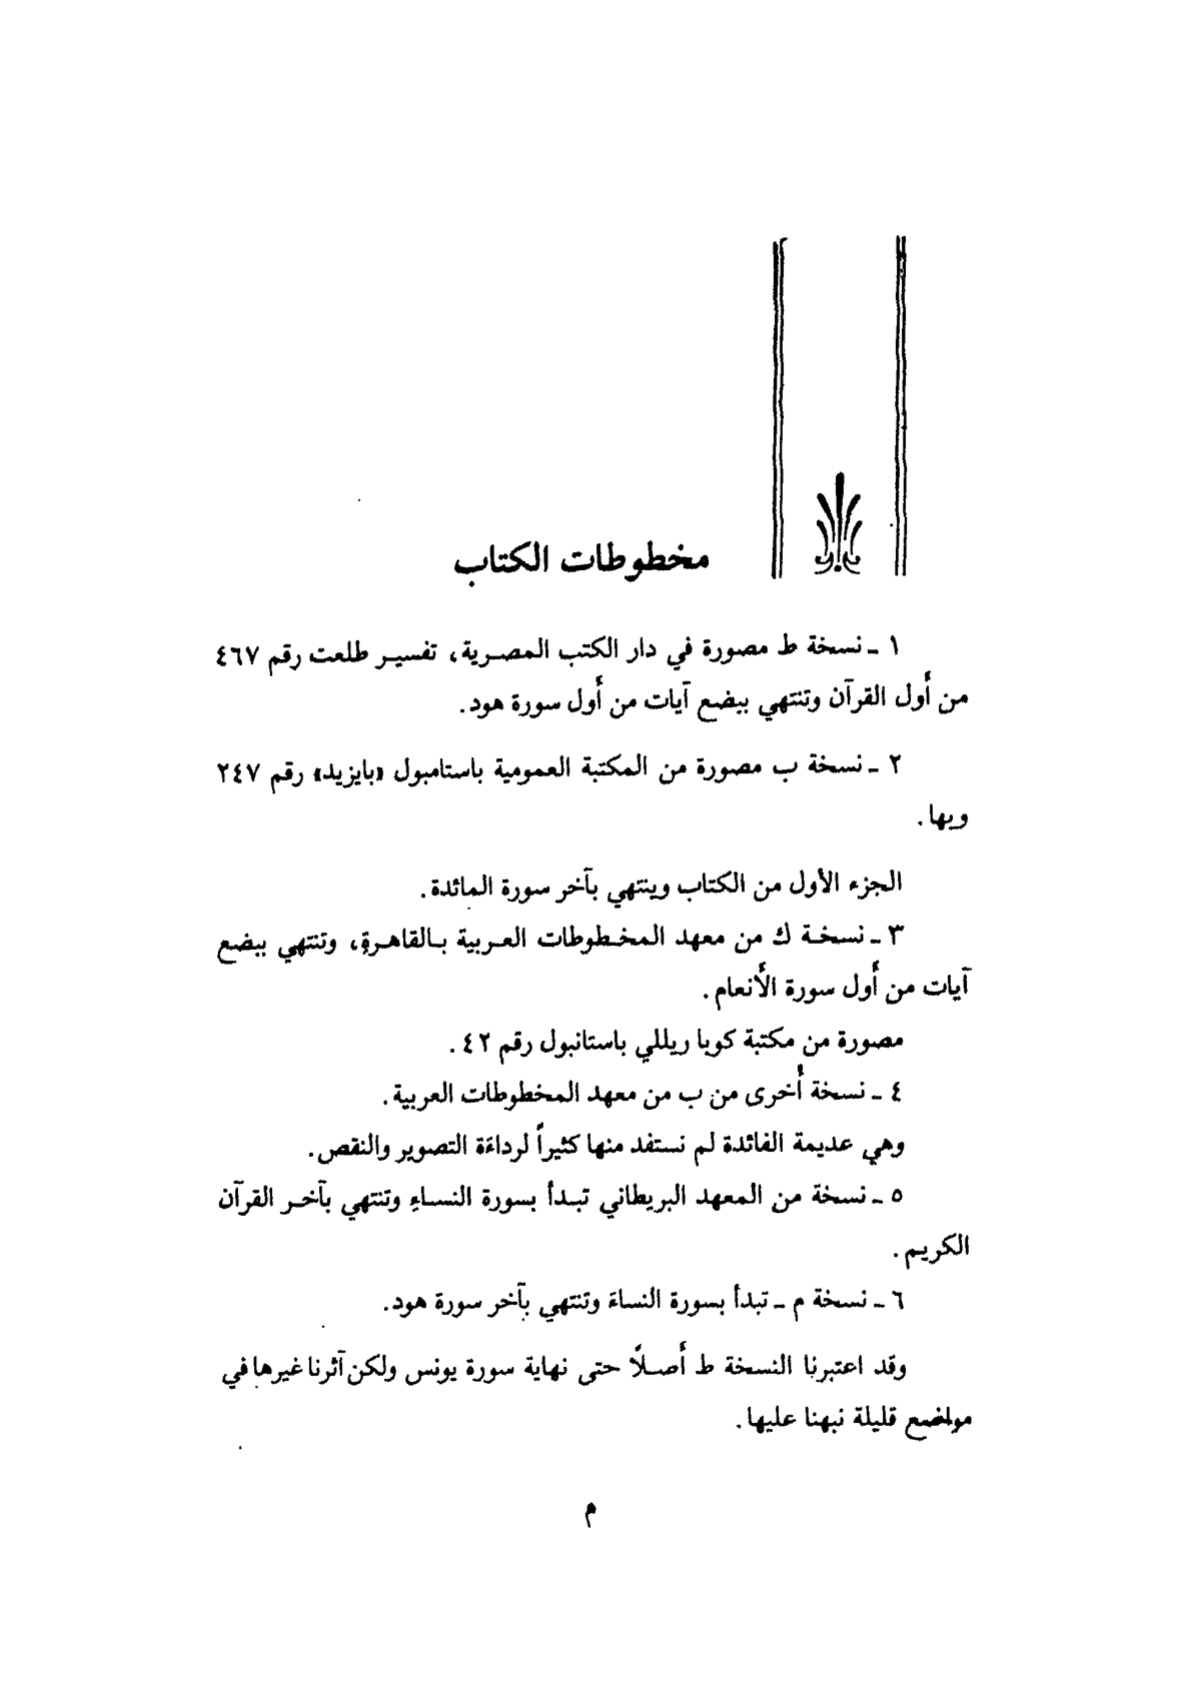 مخطوطات الكتاب
١ ـ نسخة ط مصورة في دار الكتب المصرية، تفسير طلعت رقم ٤٦٧
من أول القرآن وتنتهي ببضع آيات من أول سورة هود.
٢ ـ نسخة ب مصورة من المكتبة العمومية باستامبول «بايزيد» رقم ٢٤٧
وبها.
الجزء الأول من الكتاب وينتهي بآخر سورة المائدة.
٣ ـ نسخة ك من معهد المخطوطات العربية بالقاهرةِ، وتنتهي ببضع
آيات من أول سورة الأنعام.
مصورة من مكتبة كوبا ريللي باستانبول رقم ٤٢.
٤ ـ نسخة أخرى من ب من معهد المخطوطات العربية.
وهي عديمة الفائدة لم نستفد منها كثيراً لرداءَة التصوير والنقص.
٥ ـ نسخة من المعهد البريطاني تبدأ بسورة النساءِ وتنتهي بآخر القرآن
الكريم.
٦ ـ نسخة م ـ تبدأ بسورة النساءَ وتنتهي بآخر سورة هود.
وقد اعتبرنا النسخة ط أصلًا حتى نهاية سورة يونس ولكن آثرنا غيرها في
مواضع قليلة نبهنا عليها.
م